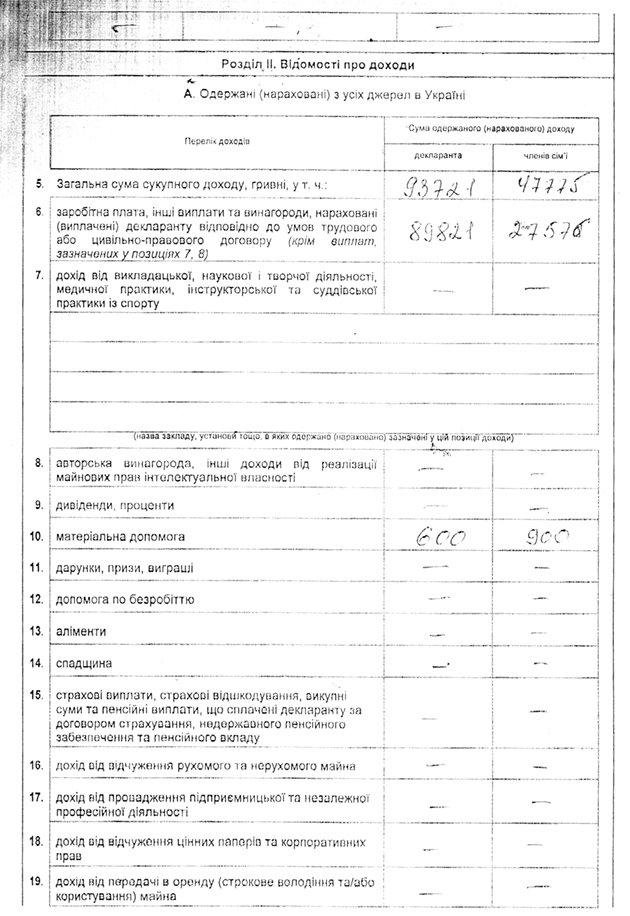 Розділ II. Відомості про доходи
А. Одержані (нараховані) з усіх джерел в Україні
Перелік доходів
Сума одержаного (нарахованого) доходу
декларанта
членів сім'ї
5. Загальна сума сукупного доходу, гривні, у т. ч.: 93721 47775
6. заробітна плата, інші виплати та винагороди, нараховані
(виплачені) декларанту відповідно до умов трудового
або цивільно-правового договору (крім виплат,
зазначених у позиціях 7, 8)
89821 27575
7. дохід від викладацької, наукової і творчої діяльності,
медичної практики, інструкторської та суддівської
практики із спорту
— —
(назва закладу, установи тощо, в яких одержано (нараховано) зазначені у цій позиції доходи)
8. авторська винагорода, інші доходи від реалізації
майнових прав інтелектуальної власності
— —
9. дивіденди, проценти — —
10. матеріальна допомога 600 900
11. дарунки, призи, виграші — —
12. допомога по безробіттю — —
13. аліменти — —
14. спадщина — —
15. страхові виплати, страхові відшкодування, викупні
суми та пенсійні виплати, що сплачені декларанту за
договором страхування, недержавного пенсійного
забезпечення та пенсійного вкладу
— —
16. дохід від відчуження рухомого та нерухомого майна — —
17. дохід від провадження підприємницької та незалежної
професійної діяльності
— —
18. дохід від відчуження цінних паперів та корпоративних
прав
— —
19. дохід від передачі в оренду (строкове володіння та/або
користування) майна
— —